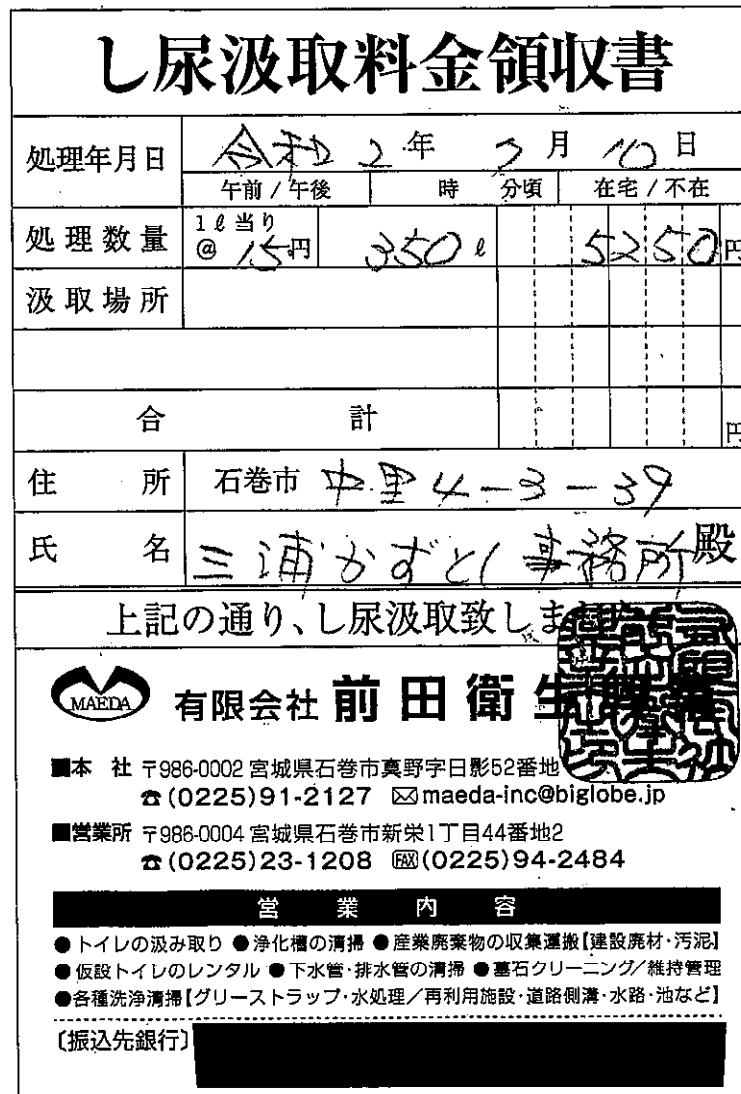 し尿汲取料金領収書
処理年月日 令和2年2月10日
午前/午後 時 分頃 在宅/不在
処理数量 1ℓ当り @15円 350ℓ 5250円
汲取場所
合計 円
住所 石巻市 中里4-3-39
氏名 三浦かずとし事務所殿
上記の通り、し尿汲取致しま
MAEDA 有限会社 前田衛生
■本社 〒986-0002 宮城県石巻市真野字日影52番地
☎(0225)91-2127 ✉maeda-inc@biglobe.jp
■営業所 〒986-0004 宮城県石巻市新栄1丁目44番地2
☎(0225)23-1208 FAX(0225)94-2484
営業内容
●トイレの汲み取り ●浄化槽の清掃 ●産業廃棄物の収集運搬【建設廃材・汚泥】
●仮設トイレのレンタル ●下水管・排水管の清掃 ●墓石クリーニング/維持管理
●各種洗浄清掃【グリーストラップ・水処理/再利用施設・道路側溝・水路・池など】
〔振込先銀行〕